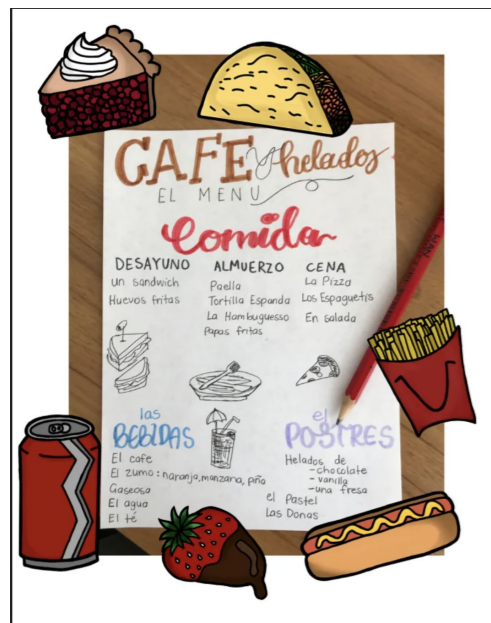 CAFE y helados
EL MENU
Comida
DESAYUNO
un sandwich
Huevos fritas
ALMUERZO
Paella
Tortilla Espanda
La Hambuguesso
Papas fritas
CENA
La Pizza
Los Espaguetis
En salada
las
BEBIDAS
El cafe
El zumo: naranja, manzana, piña
Gaseosa
El agua
El té
el
POSTRES
Helados de
- chocolate
- vanilla
- una fresa
el Pastel
Las Donas